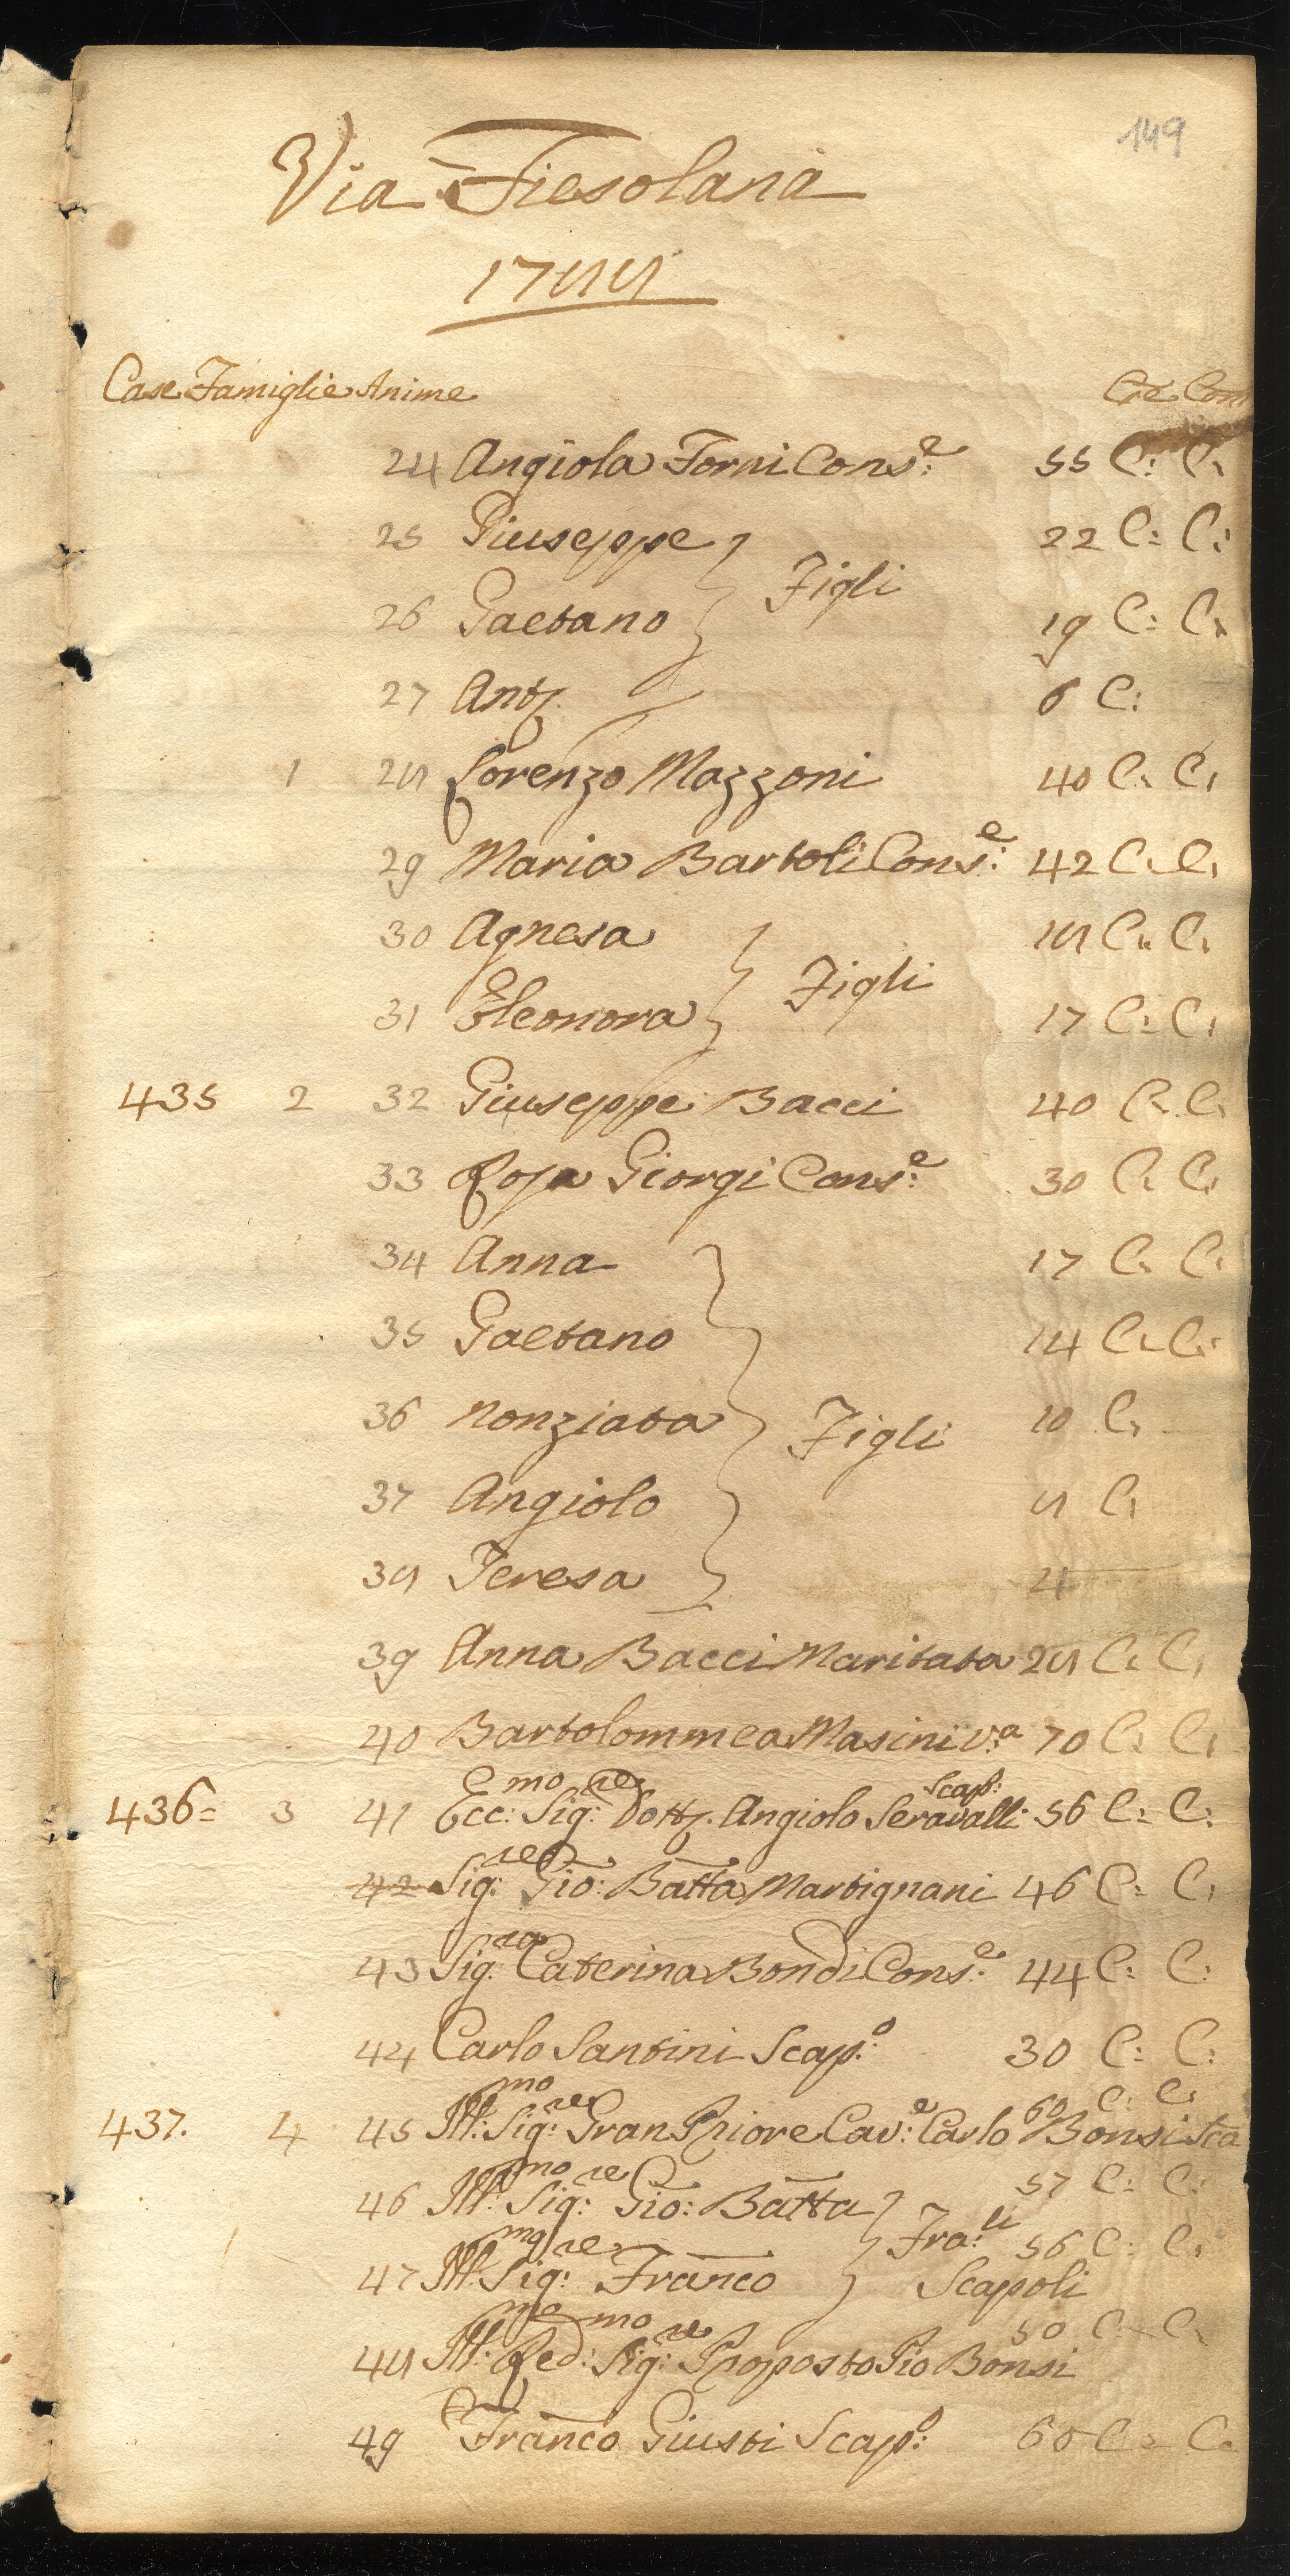 149
Via Fiesolana
1788
Case Famiglie Anime Cre Com
24 Angiola Forni Cons:e 55 C: C:
25 Giuseppe 22 C: C:
Figli
26 Gaetano 19 C: C:
27 Ant. 6 C:
1 28 Lorenzo Mazzoni 40 C: C:
29 Maria Bartoli Cons:e 42 C: C:
30 Agnesa 18 C: C:
Figli
31 Eleonora 17 C: C:
435 2 32 Giuseppe Bacci 40 C: C:
33 Rosa Giorgi Cons:e 30 C: C:
34 Anna 17 C: C:
35 Gaetano 14 C: C:
36 Nonziata Figli 10 C:
37 Angiolo 8 C:
38 Teresa 4
39 Anna Bacci Maritata 28 C: C:
40 Bartolommea Masini v:a 70 C: C:
436= 3 41 Ecc:mo Sig:re Dott. Angiolo Seravalli Scap: 56 C: C:
42 Sig:re Gio: Batta Martignani 46 C: C:
43 Sig:ra Caterina Bondi Cons:e 44 C: C:
44 Carlo Santini Scap:o 30 C: C:
437. 4 45 Ill:mo Sig:re Gran Priore Cav:e Carlo Bonsi Sca 60 C: C:
46 Ill:mo Sig:re Gio: Batta 57 C: C:
Fra:li
47 Ill:mo Sig:re Franco Scapoli 56 C: C:
48 Ill:mo Red:mo Sig:re Proposto Pio Bonsi 50 C: C:
49 Franco Giusti Scap:o 60 C: C: